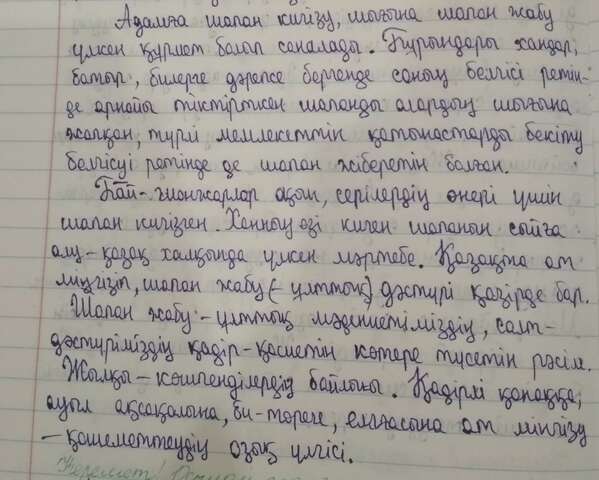 Адамға шапан кигізу, иығына шапан жабу
үлкен құрмет болып саналады. Бұрындары хандар,
батыр, билерге дәреже бергенде соның белгісі ретін-
де арнайы тіктірткен шапанды олардың иығына
жапқан, түрлі мемлекеттік қатынастарды бекіту
белгісі ретінде де шапан жіберетін болған.
Бай-манжарлар ақын, серілердің өнері үшін
шапан кигізген. Ханның өзі киген шапанын сыйға
алу - қазақ халқында үлкен мәртебе. Қазақта ат
мінгізіп, шапан жабу (-ұлттық) дәстүрі қазірде бар.
Шапан жабу - ұлттық мәдениетіміздің, салт-
дәстүріміздің қадір-қасиетін көтере түсетін рәсім.
Жылқы - көшпенділердің байлығы. Қадірлі қонаққа,
ауыл ақсақалына, би-төреге, елағасына ат мінгізу
- қошеметтеудің озық үлгісі.
Керемет!